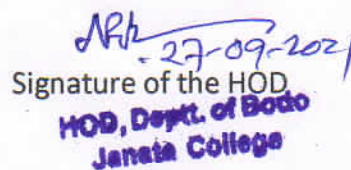 27-09-2021
Signature of the HOD
HOD, Deptt. of Bodo
Janata College